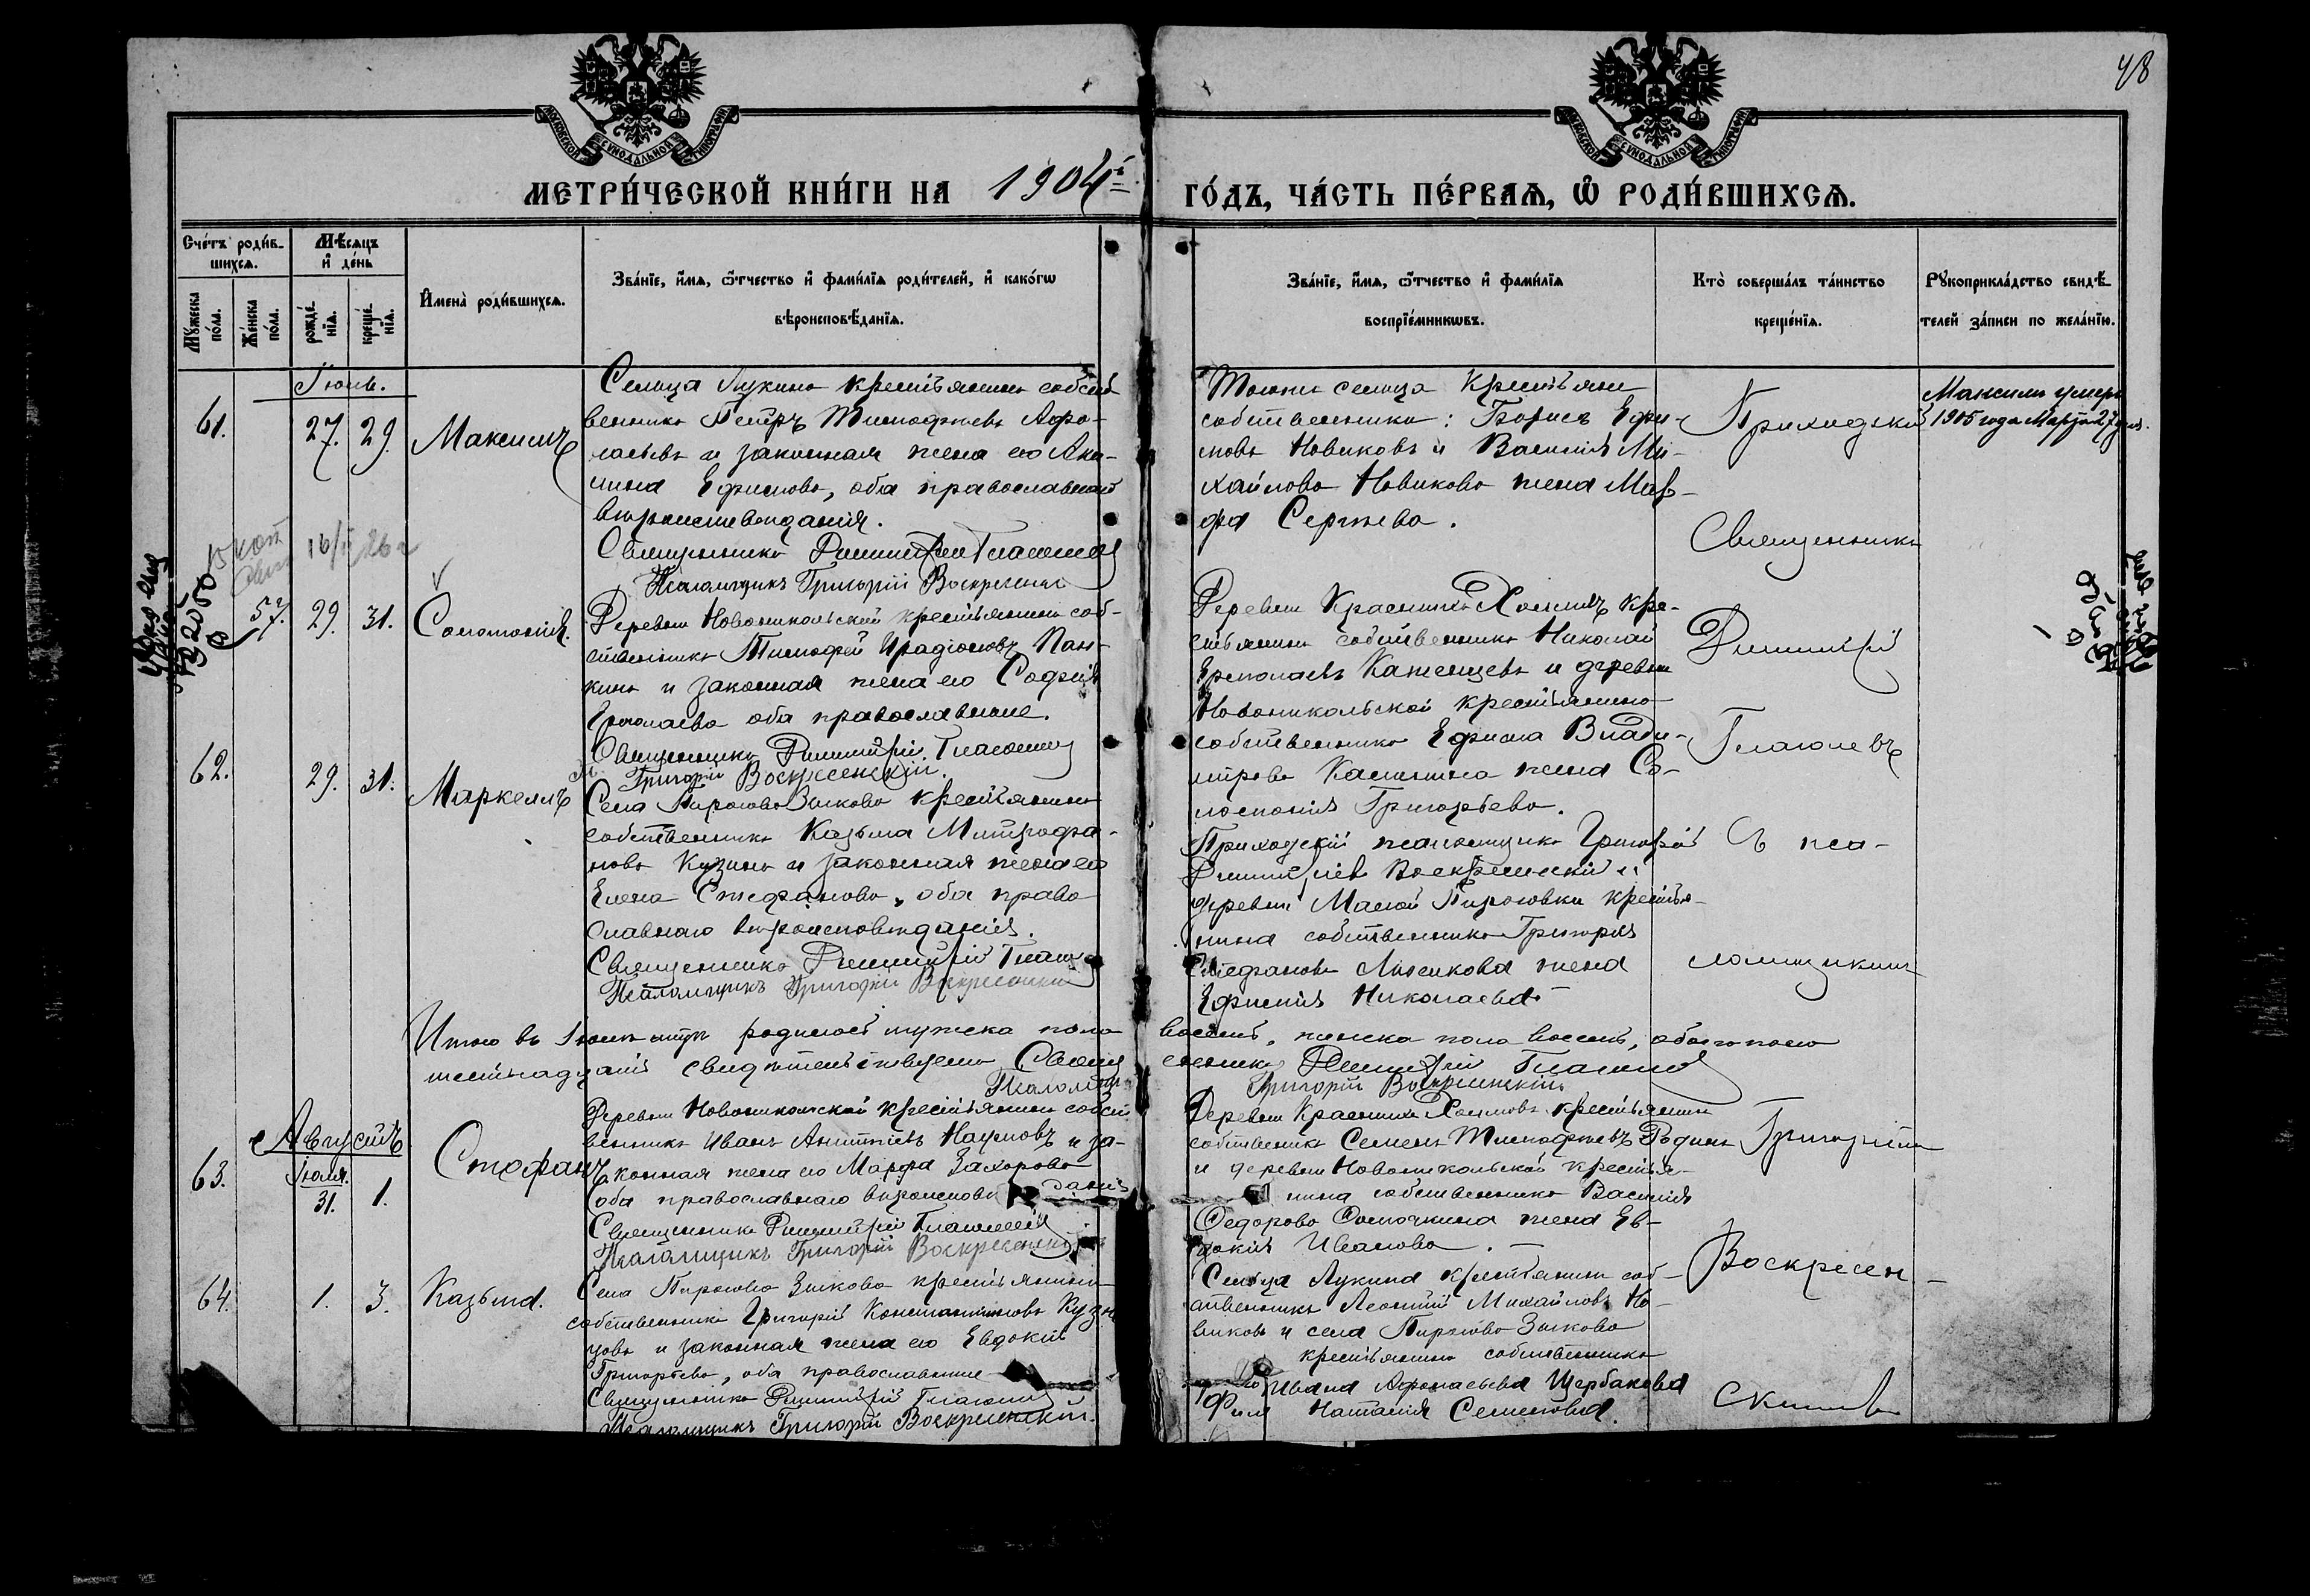 48
МОСКОВСКОЙ СѴНОДАЛЬНОЙ ТИПОГРАФІИ
МОСКОВСКОЙ СѴНОДАЛЬНОЙ ТИПОГРАФІИ
МЕТРИ́ЧЕСКОЙ КНИ́ГИ НА 1904й ГО́ДЪ, ЧА́СТЬ ПЕ́РВАѦ, Ѡ РОДИ́ВШИХСѦ.
Сче́тъ роди́в-
шихсѧ.
Мꙋ́жеска по́ла.
Же́нска по́ла.
Мѣ́сѧцъ
и҆ де́нь
рожде́-
нїѧ.
креще́-
нїѧ.
И҆мена̀ роди́вшихсѧ.
Зва́нїе, и҆́мѧ, ѻ҆́тчество и҆ фами́лїѧ роди́телей, и҆ како́гѡ
вѣроисповѣ́данїѧ.
Зва́нїе, и҆́мѧ, ѻ҆́тчество и҆ фами́лїѧ
воспрїе́мникѡвъ.
Кто̀ соверша́лъ та́инство
креще́нїѧ.
Рꙋкоприкла́дство свидѣ́-
телей за́писи по жела́нїю.
61.
27. 29.
Максимъ
Сельца Лукина крестьянинъ собст-
венникъ Петръ Тимофеевъ Афо-
насьевъ и законная жена его Аки-
лина Ефимова, оба православнаго
вѣроисповѣданія.
Священникъ Димитрій Глаголевъ
Псаломщикъ Григорій Воскресенскій
Тогоже сельца крестьяне
собственники: Борисъ Ефи-
мовъ Новиковъ и Василія Ми-
хайлова Новикова жена Мар-
фа Сергѣева.
Приходскій
Священникъ
Димитрій
Глаголевъ
Максимъ умеръ
1905 года Марта 27 дня.
57. 29. 31.
Соломонія.
Деревни Новоникольской крестьянинъ соб-
ственникъ Тимофей Иродіоновъ Пан-
кинъ и законная жена его Софія
Ермолаева оба православные.
Священникъ Димитрій Глаголевъ
Григорій Воскресенскій.
Деревни Красныхъ Холмъ кре-
стьянинъ собственникъ Николай
Ермолаевъ и деревни
Новоникольской крестьянина
собственника Ефима Влади-
мірова Калинина жена Со-
ломонія Григорьева.
62.
29. 31.
Маркеллъ
Села Пирогово Зыково крестьянинъ
собственникъ Казьма Митрофа-
новъ Кузинъ и законная жена его
Елена Стефанова, оба право
славнаго вѣроисповѣданія.
Священникъ Димитрій Глаго
Псаломщикъ Григорій Воскресенскій
Приходскій псаломщикъ Григорій
Димитріевъ Воскресенскій и
деревни Малой Пироговки крестья-
нина собственника Григорія
Стефанова жена
Ефимія Николаева
Съ пса-
ломщикомъ
Итого въ мцѣ родилось мужеска пола восемь, женска пола восемь, обоего пола
шестнадцать свидѣтельствуемъ Священникъ Димитрій Глаголевъ
Псаломщ. Григорій Воскресенскій
Августъ.
63.
Іюля.
31. 1.
Стефанъ
Деревни Новоникольской крестьянинъ собст
венникъ Иванъ Наумовъ и за-
конная жена его Марфа Захарова
оба православнаго вѣроисповѣданія
Священникъ Димитрій Глаголевъ
Псаломщикъ Григорій Воскресенскій
Деревни Красныхъ Холмовъ крестьянинъ
собственникъ Семенъ Тимофеевъ Родинъ
и деревни Новоникольской крестья-
нина собственника Василія
Федорова жена Ев-
докія Иванова.
Григоріемъ
Воскресен-
скимъ
64.
1. 3.
Казьма.
Села Пирогова Зыкова крестьянинъ
собственникъ Григорій Константиновъ Кузне
цовъ и законная жена его Евдокія
Григорьева, оба православные
Священникъ Димитрій Глаголевъ
Псаломщикъ Григорій Воскресенскій.
Сельца Лукина крестьянинъ соб-
ственникъ Леонтій Михайловъ Но-
виковъ и села Пирогово Зыково
крестьянина собственника
Ивана Афонасьева Щербакова
Наталія Семенова.